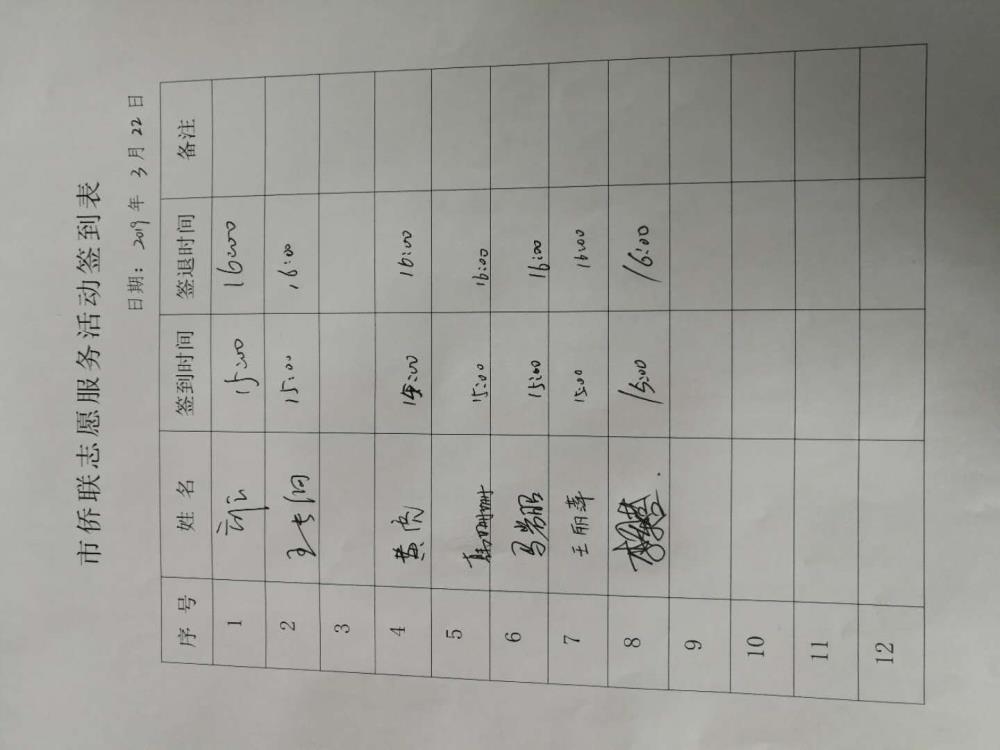 市侨联志愿服务活动签到表
日期： 2019 年 3 月 22 日
序 号 姓 名 签到时间 签退时间 备注
1 15:00 16:00
2 15:00 16:00
3
4 黄虎 15:00 16:00
5 15:00 16:00
6 15:00 16:00
7 王丽萍 15:00 16:00
8 15:00 16:00
9
10
11
12